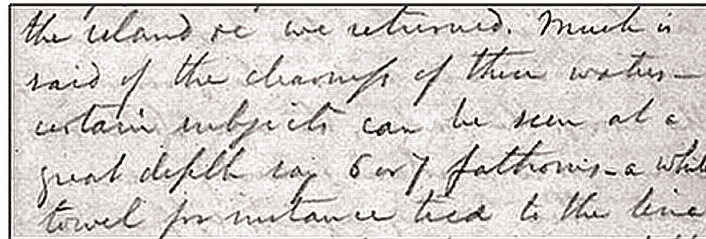 the island &c we returned. Much is
said of the clearness of these waters—
certain subjects can be seen at a
great depth say 6 or 7 fathoms—a while
towel for instance tied to the line